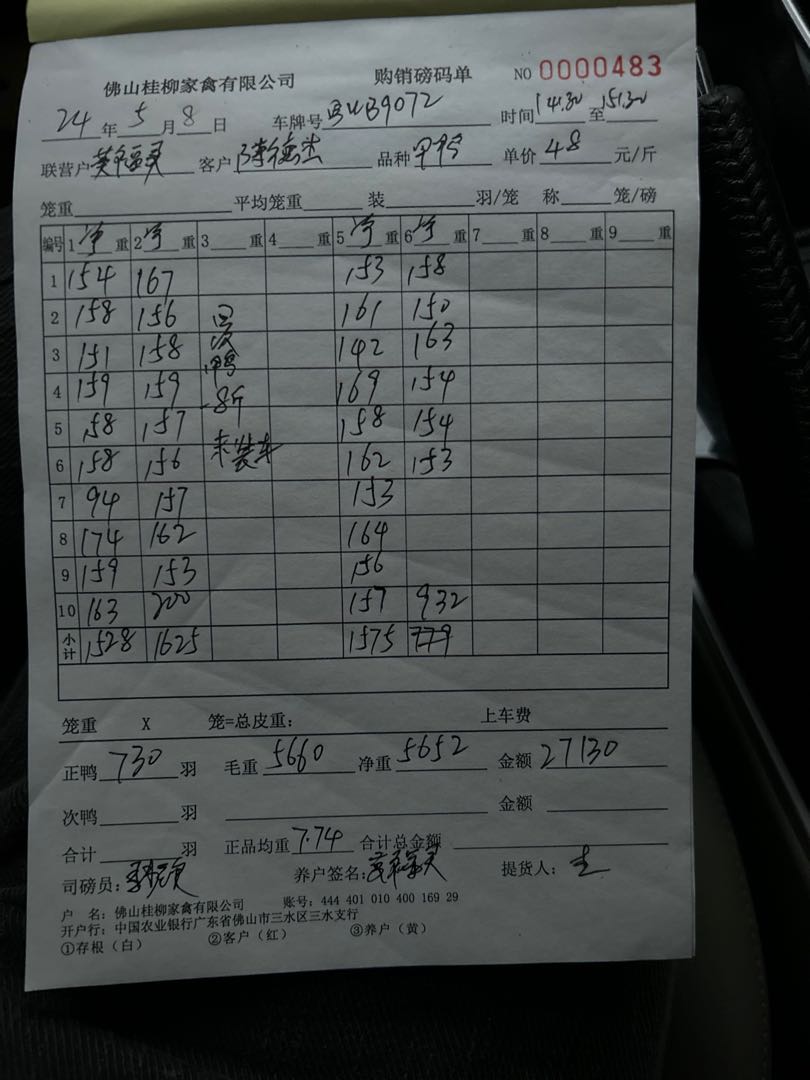 佛山桂柳家禽有限公司 购销磅码单 NO 0000483
24年5月8日 车牌号 B9072 时间14:30至15:30
联营户 客户陈德杰 品种甲鸭 单价4.8元/斤
笼重 平均笼重 装 羽/笼 称 笼/磅
编号 1净重 2净重 3 重 4 重 5净重 6净重 7 重 8 重 9 重
1 154 167 153 158
2 158 156 回 161 150
3 151 158 次鸭 142 163
4 159 159 -8斤 169 154
5 158 157 158 154
6 158 156 未装车 162 153
7 94 157 153
8 174 162 164
9 159 153 156
10 163 200 157 932
小计 1528 1625 1575 779
笼重 X 笼=总皮重： 上车费
正鸭730羽 毛重5660 净重5652 金额27130
次鸭 羽 金额
合计 羽 正品均重7.74 合计总金额
司磅员： 养户签名： 提货人：
户 名：佛山桂柳家禽有限公司 账号：444 401 010 400 169 29
开户行：中国农业银行广东省佛山市三水区三水支行
①存根（白） ②客户（红） ③养户（黄）